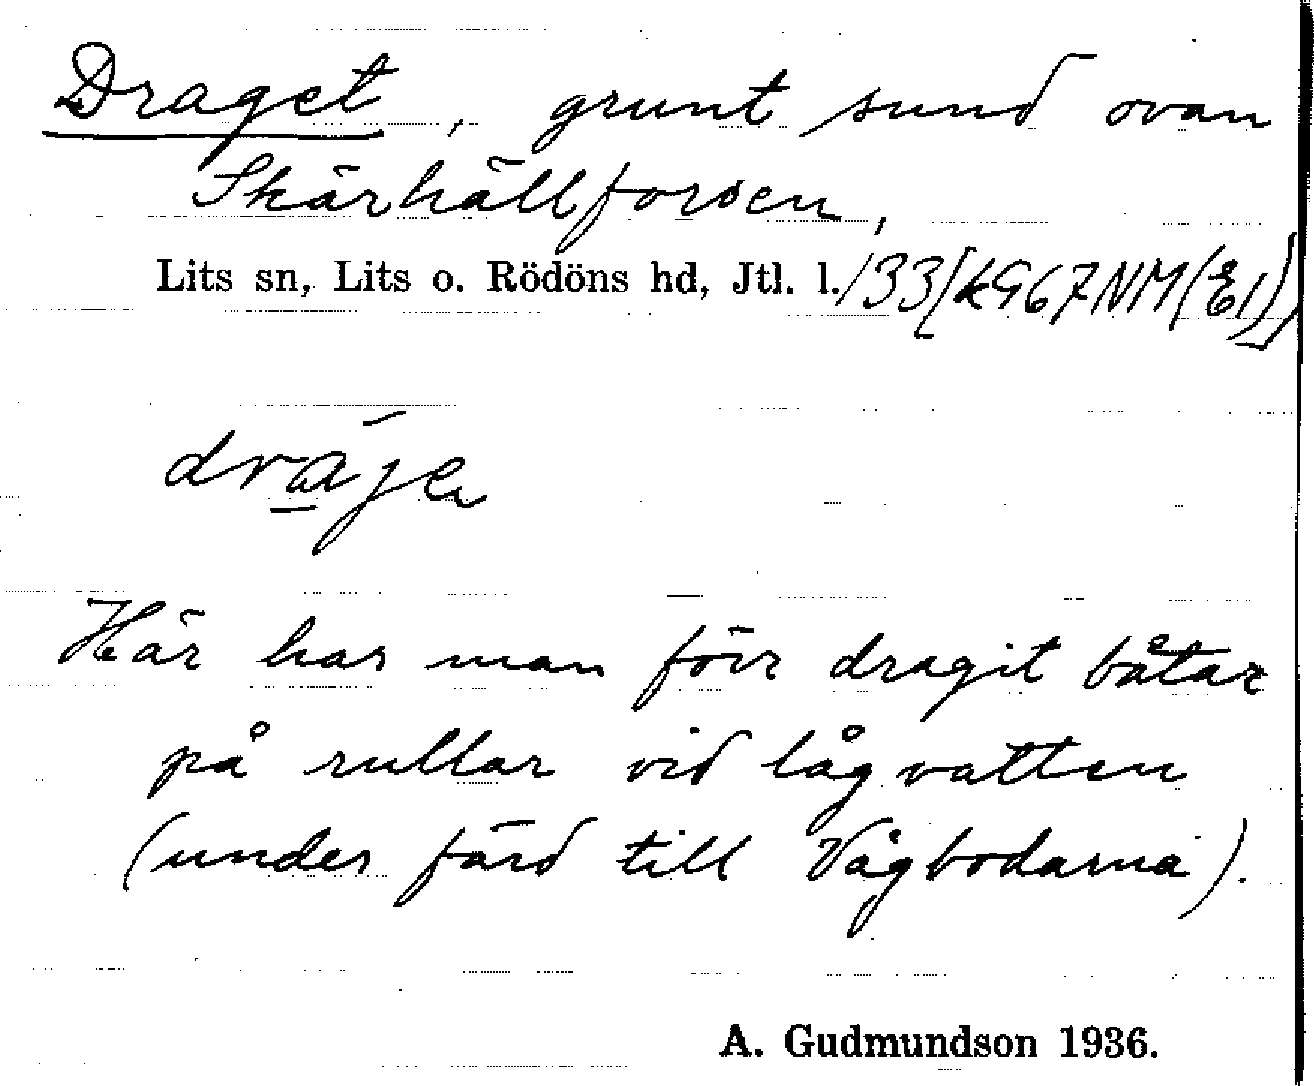 Draget, grunt sund ovan
Skärhällforsen,
Lits sn, Lits o. Rödöns hd, Jtl. l./33[k967NM(E1)]
Här har man förr dragit båtar
på rullar vid lågvatten
(under färd till Vågbodarna).
A. Gudmundson 1936.